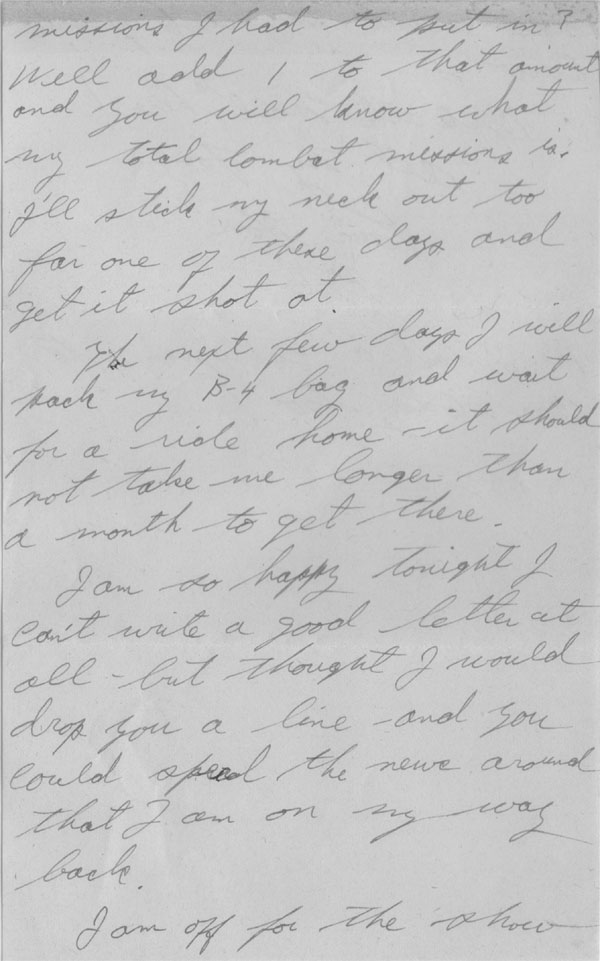 missions I had to put in?
Well add 1 to that amount
and you will know what
my total combat missions is.
I'll stick my neck out too
far one of these days and
get it shot at
The next few days I will
pack my B-4 bag and wait
for a ride home - it should
not take me longer than
a month to get there.
I am so happy tonight I
can't write a good letter at
all - but thought I would
drop you a line and you
could spead the news around
that I am on my way
back.
I am off for the show